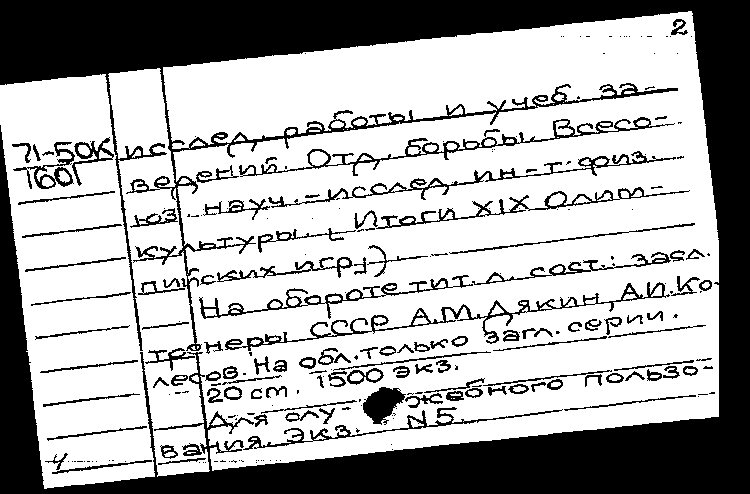 2
71-50К исслед. работы и учеб. за-
1601 ведений. Отд. борьбы. Всесо-
юз. науч.-исслед. ин-т физ.
культуры. [Итоги XIX Олим-
пийских игр])
На обороте тит. л. сост.: засл.
тренеры СССР А.М.Дякин, А.И.Ко-
лесов. На обл. только загл. серии.
20 cm. 1500 экз.
Для слу- жебного пользо-
вания. Экз. N5